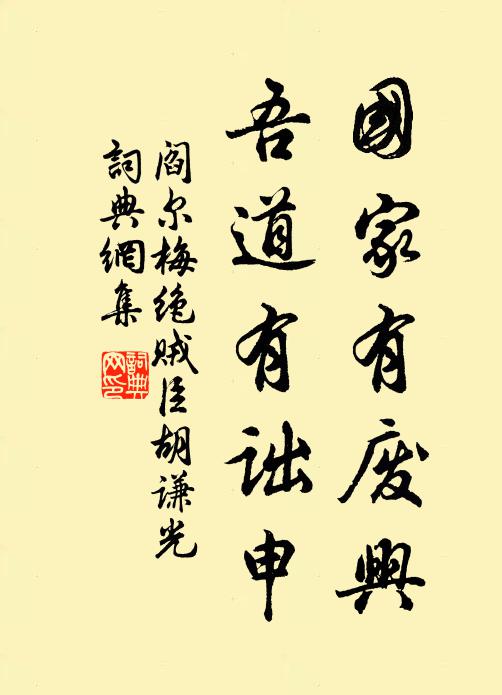 國家有废興
吾道有詘申
阎尔梅绝贼臣胡谦光
詞典網集
詞典网印